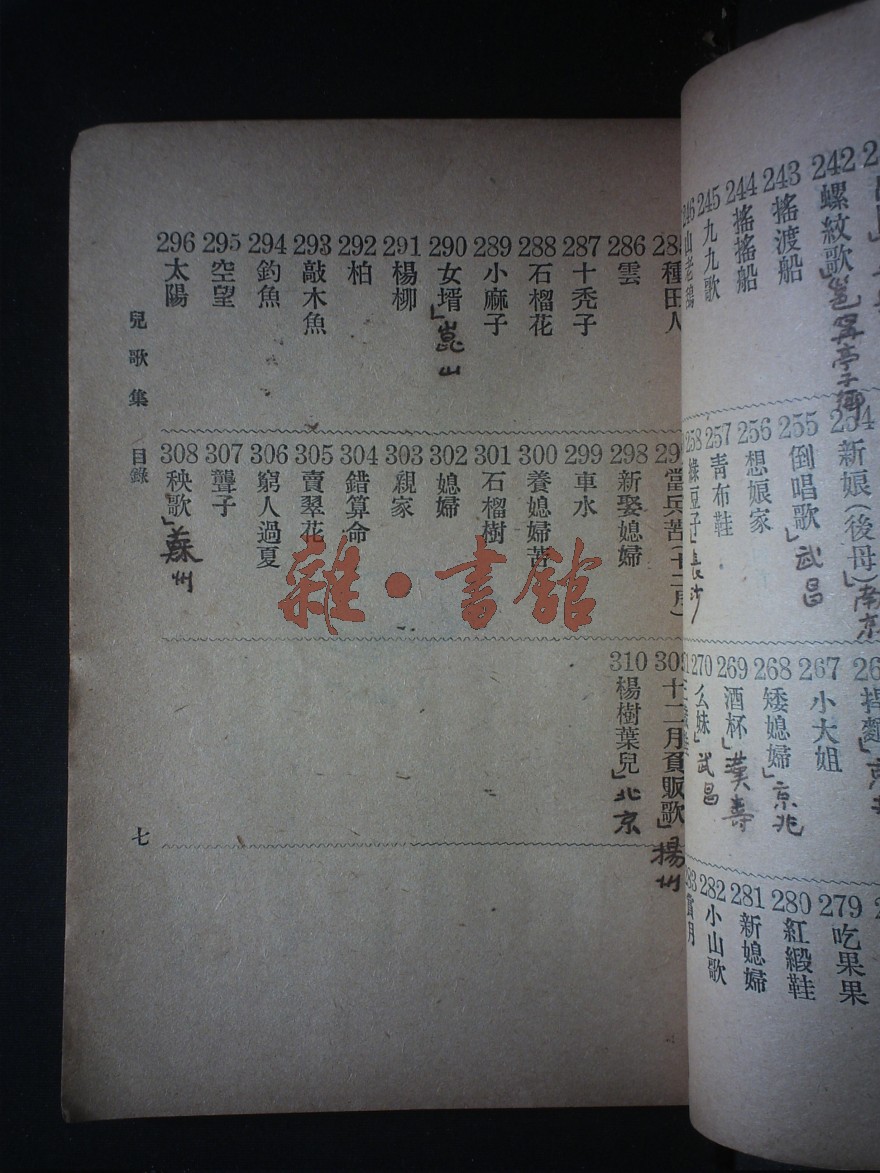 242 螺紋歌」邕寧亭子墟
243 搖渡船
244 搖搖船
245 九九歌
246 山老鴰
新娘(後母)」南京
255 倒唱歌」武昌
256 想娘家
257 青布鞋
258 綠豆子」長沙
267 小大姐
268 矮媳婦」京兆
269 酒杯」漢壽
270 么妹」武昌
279 吃果果
280 紅緞鞋
281 新媳婦
282 小山歌
賞月
種田人
286 雲
287 十禿子
288 石榴花
289 小麻子
290 女壻」崑山
291 楊柳
292 柏
293 敲木魚
294 釣魚
295 空望
296 太陽
當兵苦(十二月)
298 新娶媳婦
299 車水
300 養媳婦苦
301 石榴樹
302 媳婦
303 親家
304 錯算命
305 賣翠花
306 窮人過夏
307 聾子
308 秧歌」蘇州
309 十二月負販歌」揚州
310 楊樹葉兒」北京
兒歌集 目錄
七
雜·書館